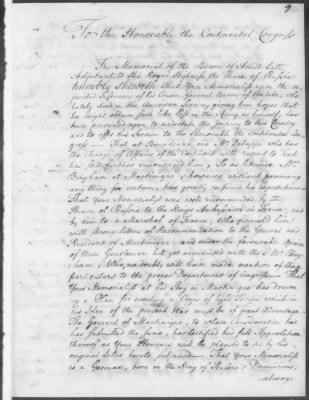 9
To the Honorable the Continental Congress
The Memorial of the Baron of Arndt Late
Adjutant to His Royal Highness the Prince of Prussia
humbly Sheweth That Your Memorialist upon the re-
peated of his Cousin General Baron of who
lately died in the American Service, giving him hopes that
he might obtain such like Post in the Army as himself, has
been prevailed upon to undertake the to this Country
and to offer his Service to the Honorable the Continental Con-
gress — That at Bourdeaux one Mr Delapp who has
the Charge of Affairs of the Continental Congress to
has encouraging him, So as likewise Mr
Bingham at Martinique, however without promising
any thing for certain, has greatly confirmed his expectations
That Your Memorialist was well recommended by the
Prince of Prussia to the Kings Ambassador in France, and
by him to a Marshal of France, Who furnished him
with Strong letters of Recommendation to the General and
President of Martinique, and under the favourable Opinion
of these Gentlemen but got acquainted with the s'd Mr Bing-
ham; Who, no doubt, will have made mention of these
particulars to the proper Department of Congress — That
Your Memorialist at his Stay in Martinique has drawn
up a Plan for erecting a Corps of Troops which in
his Idea of the present War must be of great Advantage.
The General of Martinique, to whose Consideration he
has submitted the same, has testified his full Approbation
thereof as Your Honours will be pleased to see by his
original letter hereto subjoined — That Your Memorialist
is a German, born in the King of Prussia's Dominions,
always